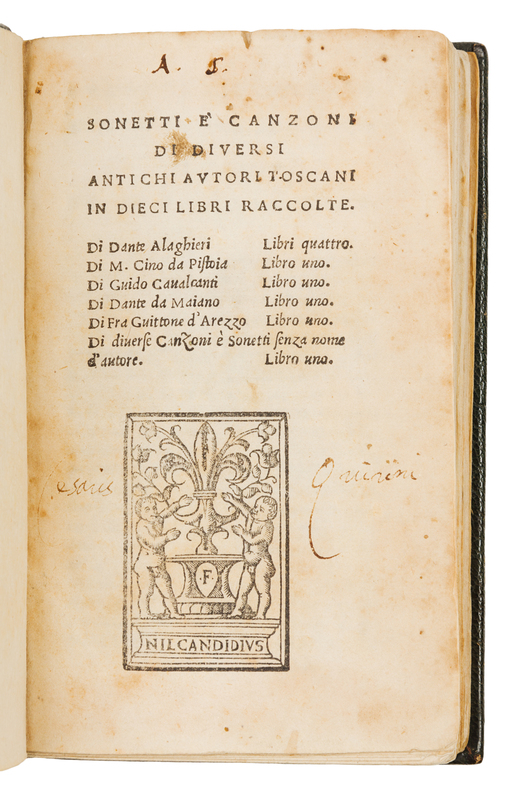 A. S.
SONETTI E' CANZONI
DI DIVERSI
ANTICHI AVTORI TOSCANI
IN DIECI LIBRI RACCOLTE.
Di Dante Alaghieri Libri quattro.
Di M. Cino da Piſtoia Libro uno.
Di Guido Caualcanti Libro uno.
Di Dante da Maiano Libro uno.
Di Fra Guittone d'Arezzo Libro uno.
Di diuerſe Canzoni è Sonetti ſenza nome
d'autore. Libro uno.
.F.
NIL CANDIDIVS